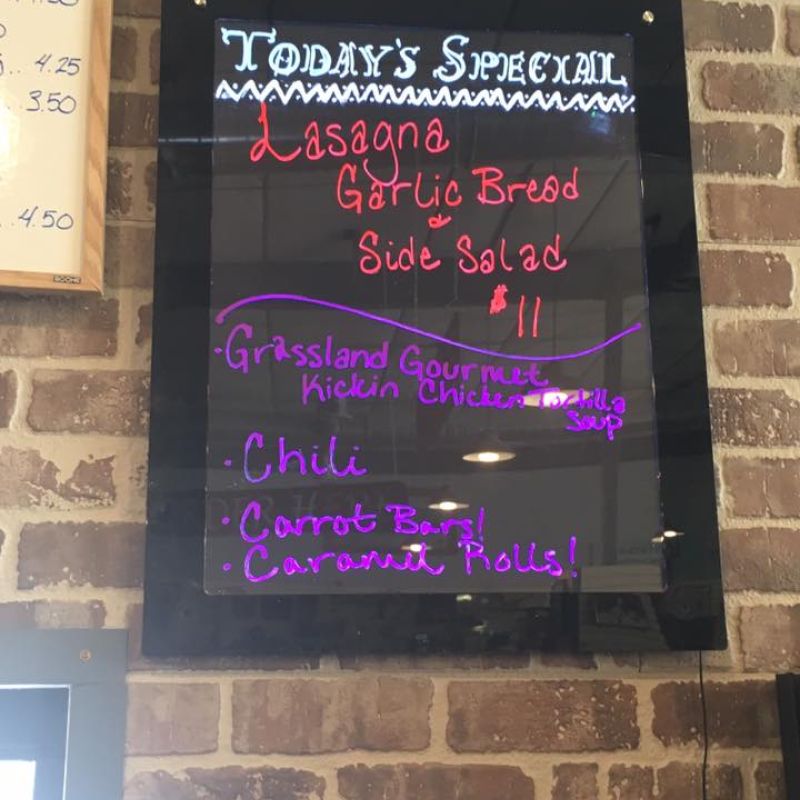 4.25
3.50
4.50
TODAY'S SPECIAL
Lasagna
Garlic Bread
&
Side Salad
$11
·Grassland Gourmet
Kickin Chicken Tortilla
Soup
·Chili
·Carrot Bars!
·Caramel Rolls!
BOONE